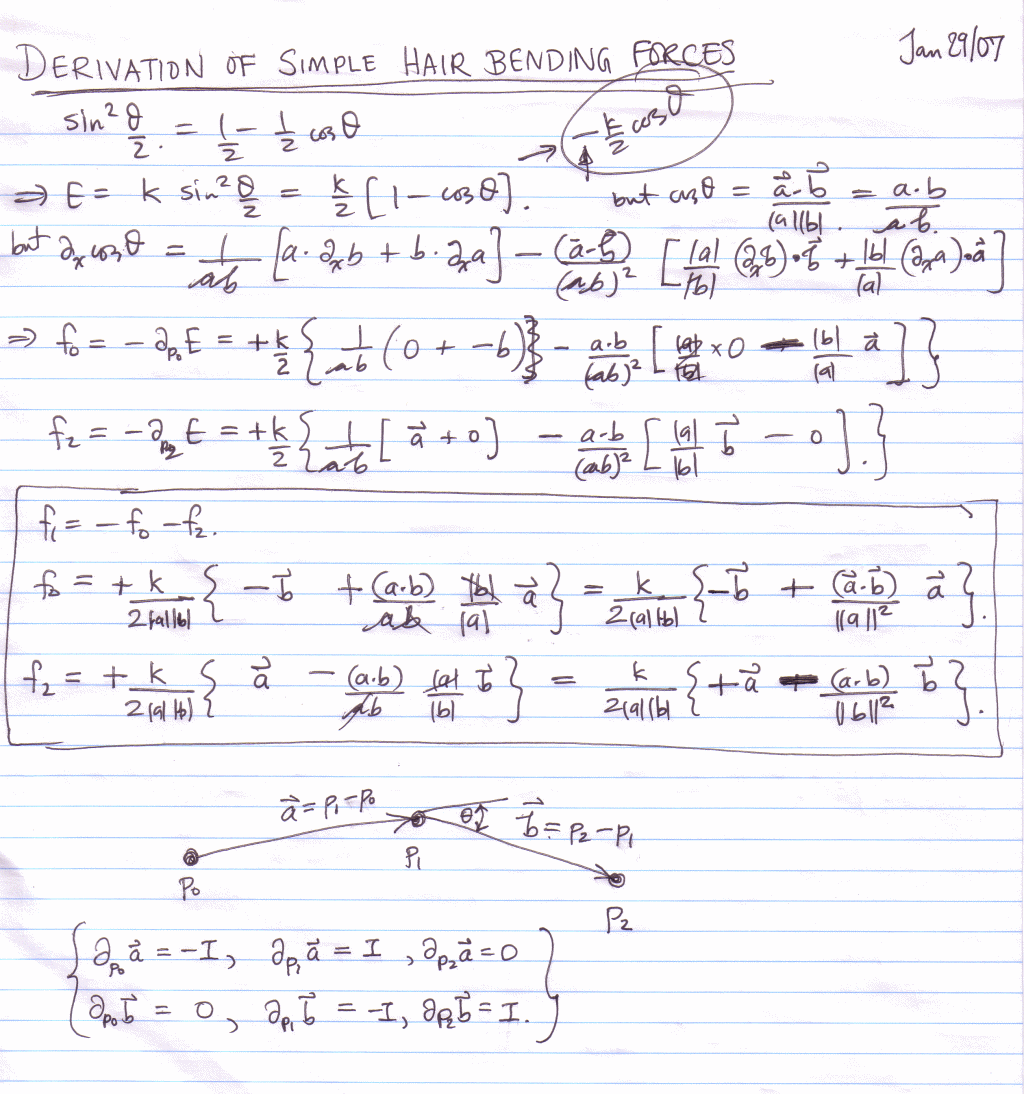 DERIVATION OF SIMPLE HAIR BENDING FORCES Jan 29/07
sin² θ/2. = 1/2 − 1/2 cos θ −k/2 cos θ
⇒ E = k sin² θ/2 = k/2 [1 − cos θ]. but cos θ = a⃗·b⃗/|a||b|. = a·b/ab.
but ∂ₓ cos θ = 1/ab [a·∂ₓb + b·∂ₓa] − (a⃗·b⃗)/(ab)² [|a|/|b| (∂ₓb)·b⃗ + |b|/|a| (∂ₓa)·a⃗]
⇒ f₀ = −∂_p₀ E = +k/2 { 1/ab (0 + −b) − a·b/(ab)² [|a|/|b| × 0 − |b|/|a| a⃗ ] }
f₂ = −∂_p₂ E = +k/2 { 1/ab [ a⃗ + 0] − a·b/(ab)² [ |a|/|b| b⃗ − 0 ]. }
f₁ = −f₀ − f₂.
f₀ = + k/2|a||b| { −b⃗ + (a·b)/ab |b|/|a| a⃗ } = k/2|a||b| { −b⃗ + (a⃗·b⃗)/||a||² a⃗ }.
f₂ = + k/2|a||b| { a⃗ − (a·b)/ab |a|/|b| b⃗ } = k/2|a||b| { +a⃗ − (a·b)/||b||² b⃗ }.
a⃗ = p₁−p₀ θ b⃗ = p₂−p₁
p₀ p₁ p₂
{ ∂_p₀ a⃗ = −I, ∂_p₁ a⃗ = I, ∂_p₂ a⃗ = 0
∂_p₀ b⃗ = 0, ∂_p₁ b⃗ = −I, ∂_p₂ b⃗ = I. }